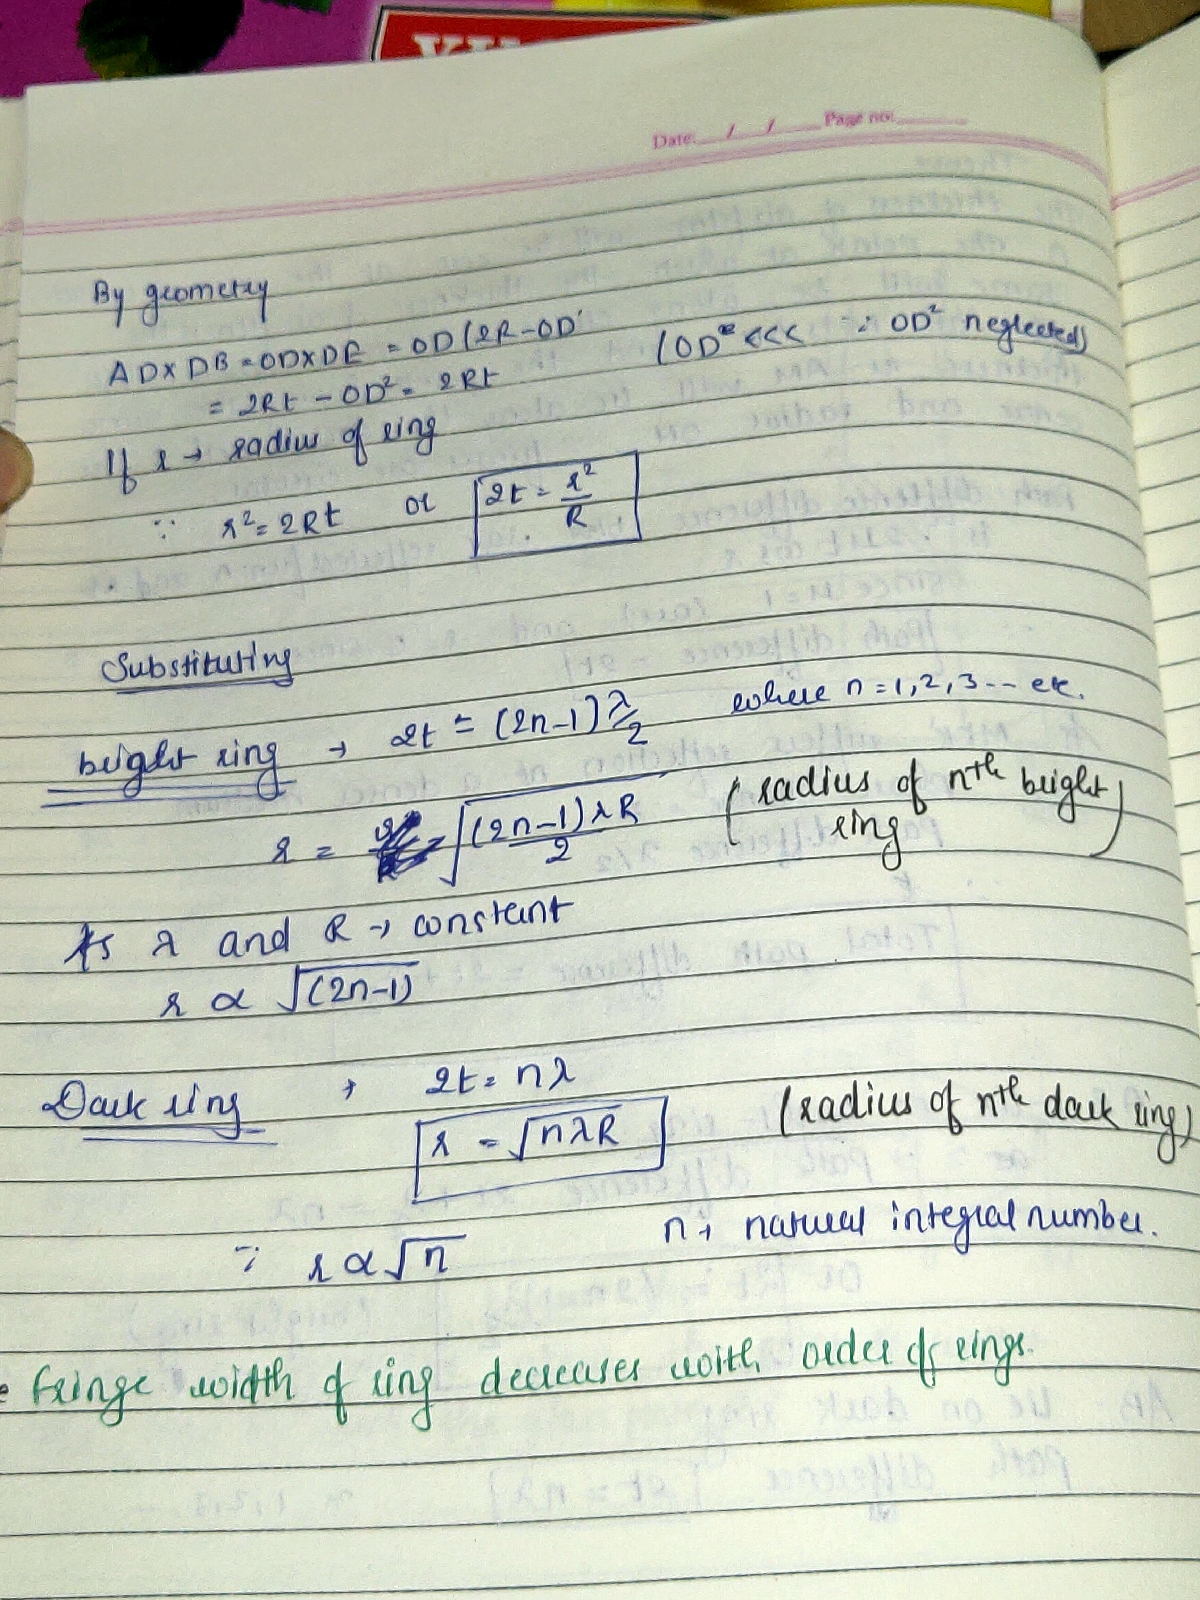 Date: / / Page no:
By geometry
AD×DB = OD×DE = OD(2R-OD) (OD² <<< ∴ OD² neglected)
= 2Rt - OD² = 2Rt
If r → radius of ring
∵ r² = 2Rt or 2t = r²/R
Substituting
bright ring → 2t = (2n-1)λ/2 where n = 1, 2, 3 -- etc.
r = √((2n-1)λR/2) (radius of nth bright ring)
As λ and R → constant
r ∝ √(2n-1)
Dark ring → 2t = nλ
r = √nλR (radius of nth dark ring)
n → natural integral number.
∵ r ∝ √n
Fringe width of ring decreases with order of rings.